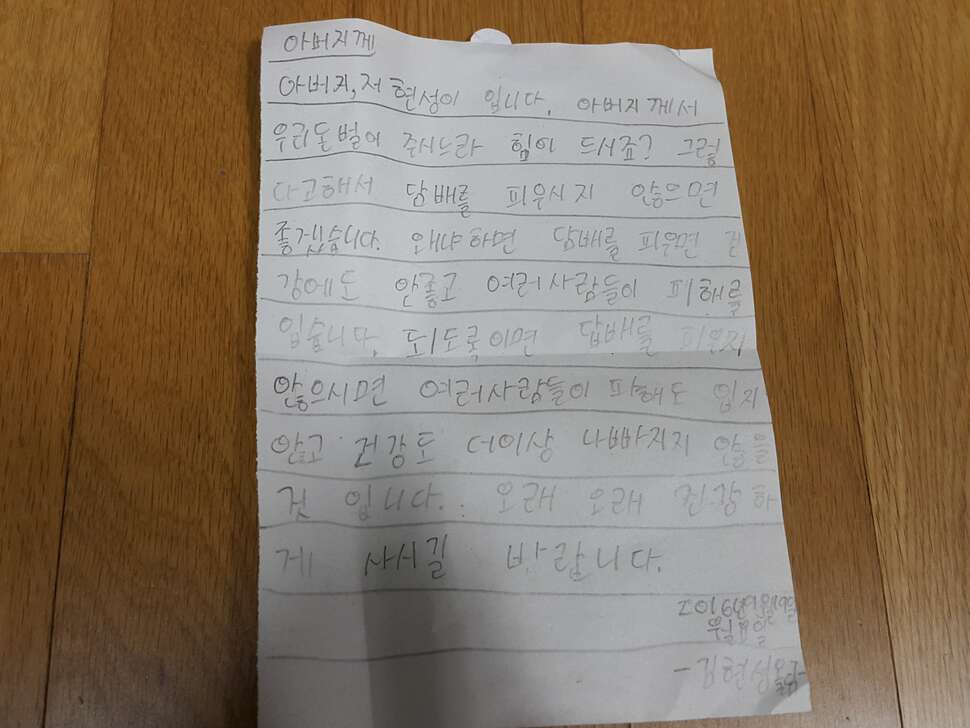 아버지께
아버지, 저 현성이 입니다. 아버지께서
우리돈벌어 주시느라 힘이 드시죠? 그렇
다고해서 담배를 피우시지 않으면
좋겠습니다. 왜냐하면 담배를 피우면 건
강에도 안좋고 여러사람들이 피해를
입습니다. 되도록이면 담배를 피우지
않으시면 여러사람들이 피해도 입지
않고 건강도 더이상 나빠지지 않을
것 입니다. 오래 오래 건강하
게 사시길 바랍니다.
2016년9월19일
월요일
-김현성올림-